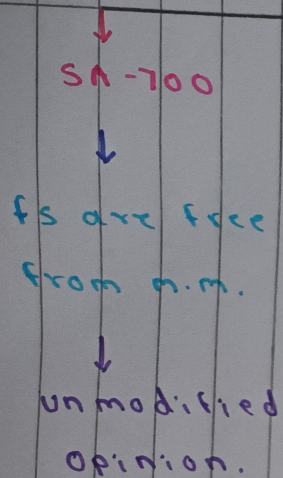 SA-700
fs are free
from m.m.
unmodified
opinion.